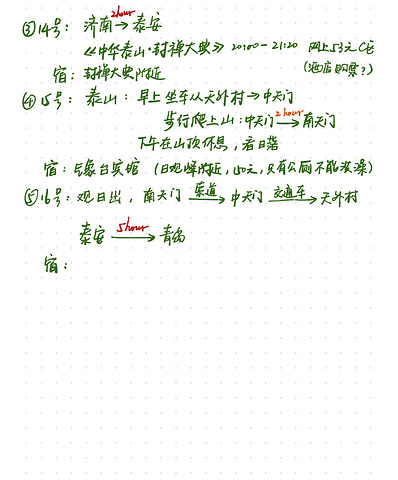 ③14号: 济南 2hour→ 泰安
《中华泰山·封禅大典》 20:00-21:20 网上53元C区
宿: 封禅大典附近 (酒店购票?)
④15号: 泰山: 早上坐车从天外村→中天门
步行爬上山: 中天门 2hour→ 南天门
下午在山顶休息, 看日落
宿: 气象台宾馆 (日观峰附近, 150元, 只有公厕不能洗澡)
⑤16号: 观日出, 南天门 索道→ 中天门 交通车→ 天外村
泰安 5hour→ 青岛
宿: